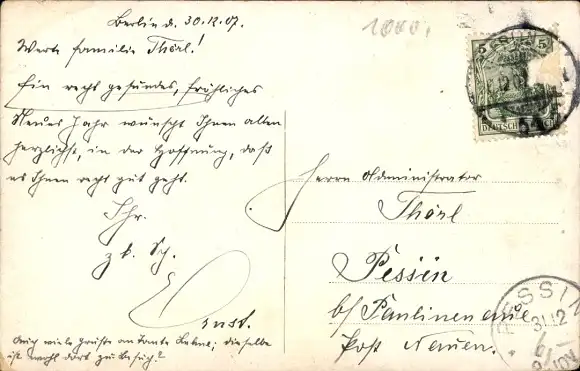 Berlin d. 30.12.07.
1000.
Werte Familie Thörl!
Ein recht gesundes, fröhliches
Neues Jahr wünscht Ihnen allen
herzlichst, in der Hoffnung, daß
es Ihnen recht gut geht.
Ihr
Ernst.
Auch viele Grüße an Tante; dieselbe
ist wohl dort zu Besuch?
5 5
DEUTSCHES
Herrn Administrator
Thörl
Pessin
b/ Paulinenaue
Post Nauen.
PESSIN
31.12